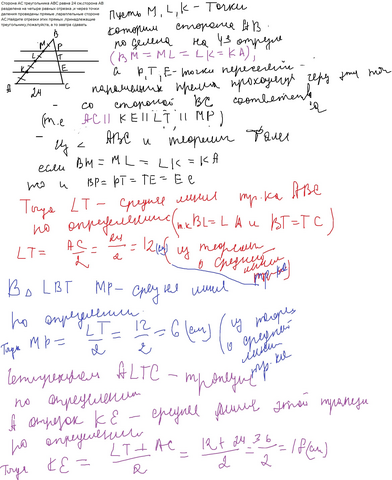 Сторона АС треугольника АВС равна 24 см,сторона АВ
разделена на четыре равных отрезка ,и через точки
деления проведены прямые ,параллельные стороне
АС.Найдите отрезки этих прямых ,принадлежащие
треугольнику,пожалуйста, а то завтра сдавать
B
M P
L T
K E
A C
24
Пусть M, L, K - точки
которыми сторона AB
поделена на 4 отрезка
(BM = ML = LK = KA),
а P, T, E - точки пересечения
параллельных прямых проходящих через эти точки
со стороной BC соответственно
(т.е AC || KE || LT || MP)
Из △ ABC и теоремы Фалеса
если BM = ML = LK = KA
то и BP = PT = TE = EC
Тогда LT - средняя линия тр-ка ABC
по определению (т.к BL = LA и BT = TC)
LT = AC/2 = 24/2 = 12 (см) (из теоремы
о средней
линии
тр-ка)
В △ LBT MP - средняя линия
по определению.
Тогда MP = LT/2 = 12/2 = 6 (см) (из теоремы
о средней
линии
тр-ка)
Четырехугольник ALTC - трапеция
по определению
А отрезок KE - средняя линия этой трапеции
по определению
Тогда KE = LT + AC/2 = 12 + 24/2 = 36/2 = 18 (см)